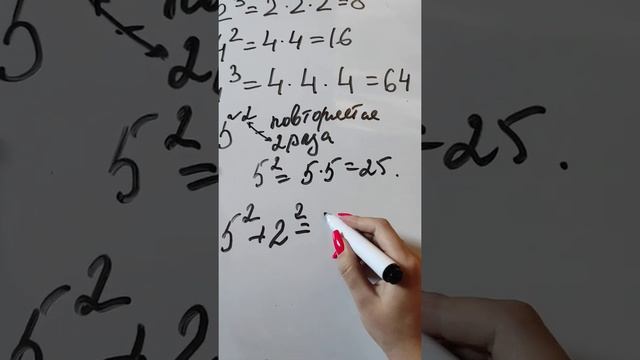 2³ = 2·2·2 = 8
4² = 4·4 = 16
4³ = 4·4·4 = 64
5² повторяется
2 раза
5² = 5·5 = 25.
5² + 2² =